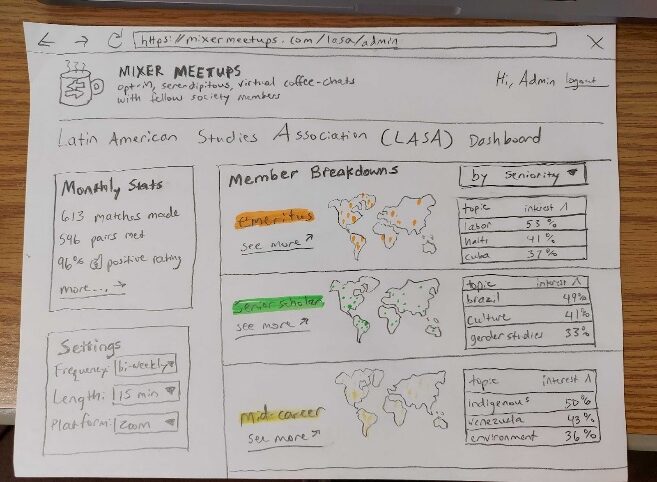 https://mixermeetups.com/lasa/admin
MIXER MEETUPS
opt-in, serendipitous, virtual coffee-chats
with fellow society members
Hi, Admin logout
Latin American Studies Association (LASA) Dashboard
Monthly Stats
613 matches made
596 pairs met
96% positive rating
more... →
Settings
Frequency: bi-weekly ▼
Length: 15 min ▼
Platform: Zoom ▼
Member Breakdowns
by Seniority ▼
emeritus
see more ↗
topic interest Λ
labor 53%
haiti 41%
cuba 37%
senior scholar
see more ↗
topic interest Λ
brazil 49%
culture 41%
gender studies 33%
mid-career
see more ↗
topic interest Λ
indigenous 50%
venezuela 43%
environment 36%